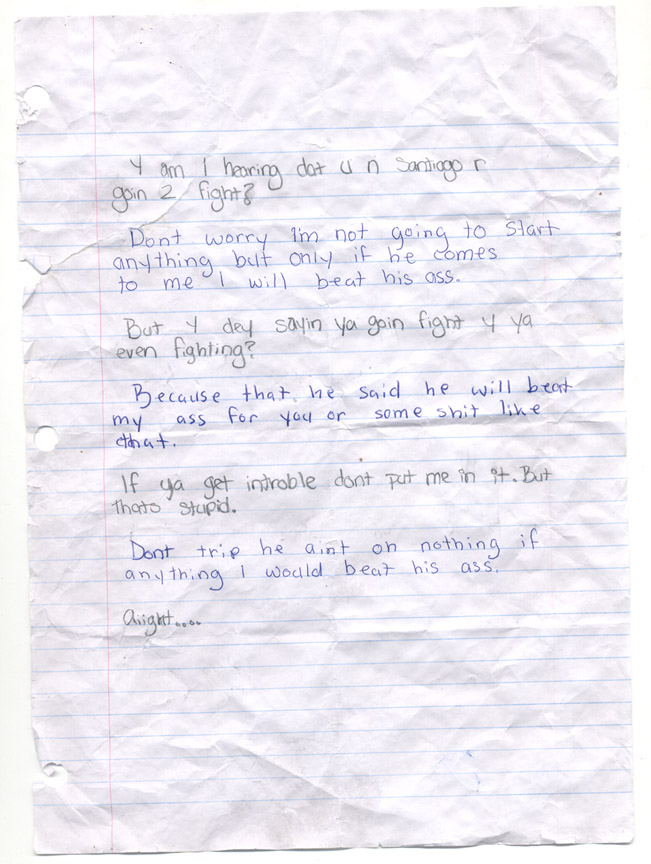 Y am I hearing dat u n Santiago r
goin 2 fight?
Dont worry Im not going to start
anything but only if he comes
to me I will beat his ass.
But Y dey sayin ya goin fight Y ya
even fighting?
Because that he said he will beat
my ass for you or some shit like
that.
If ya get introble dont put me in it. But
thats stupid.
Dont trip he aint on nothing if
anything I would beat his ass.
Aiight....